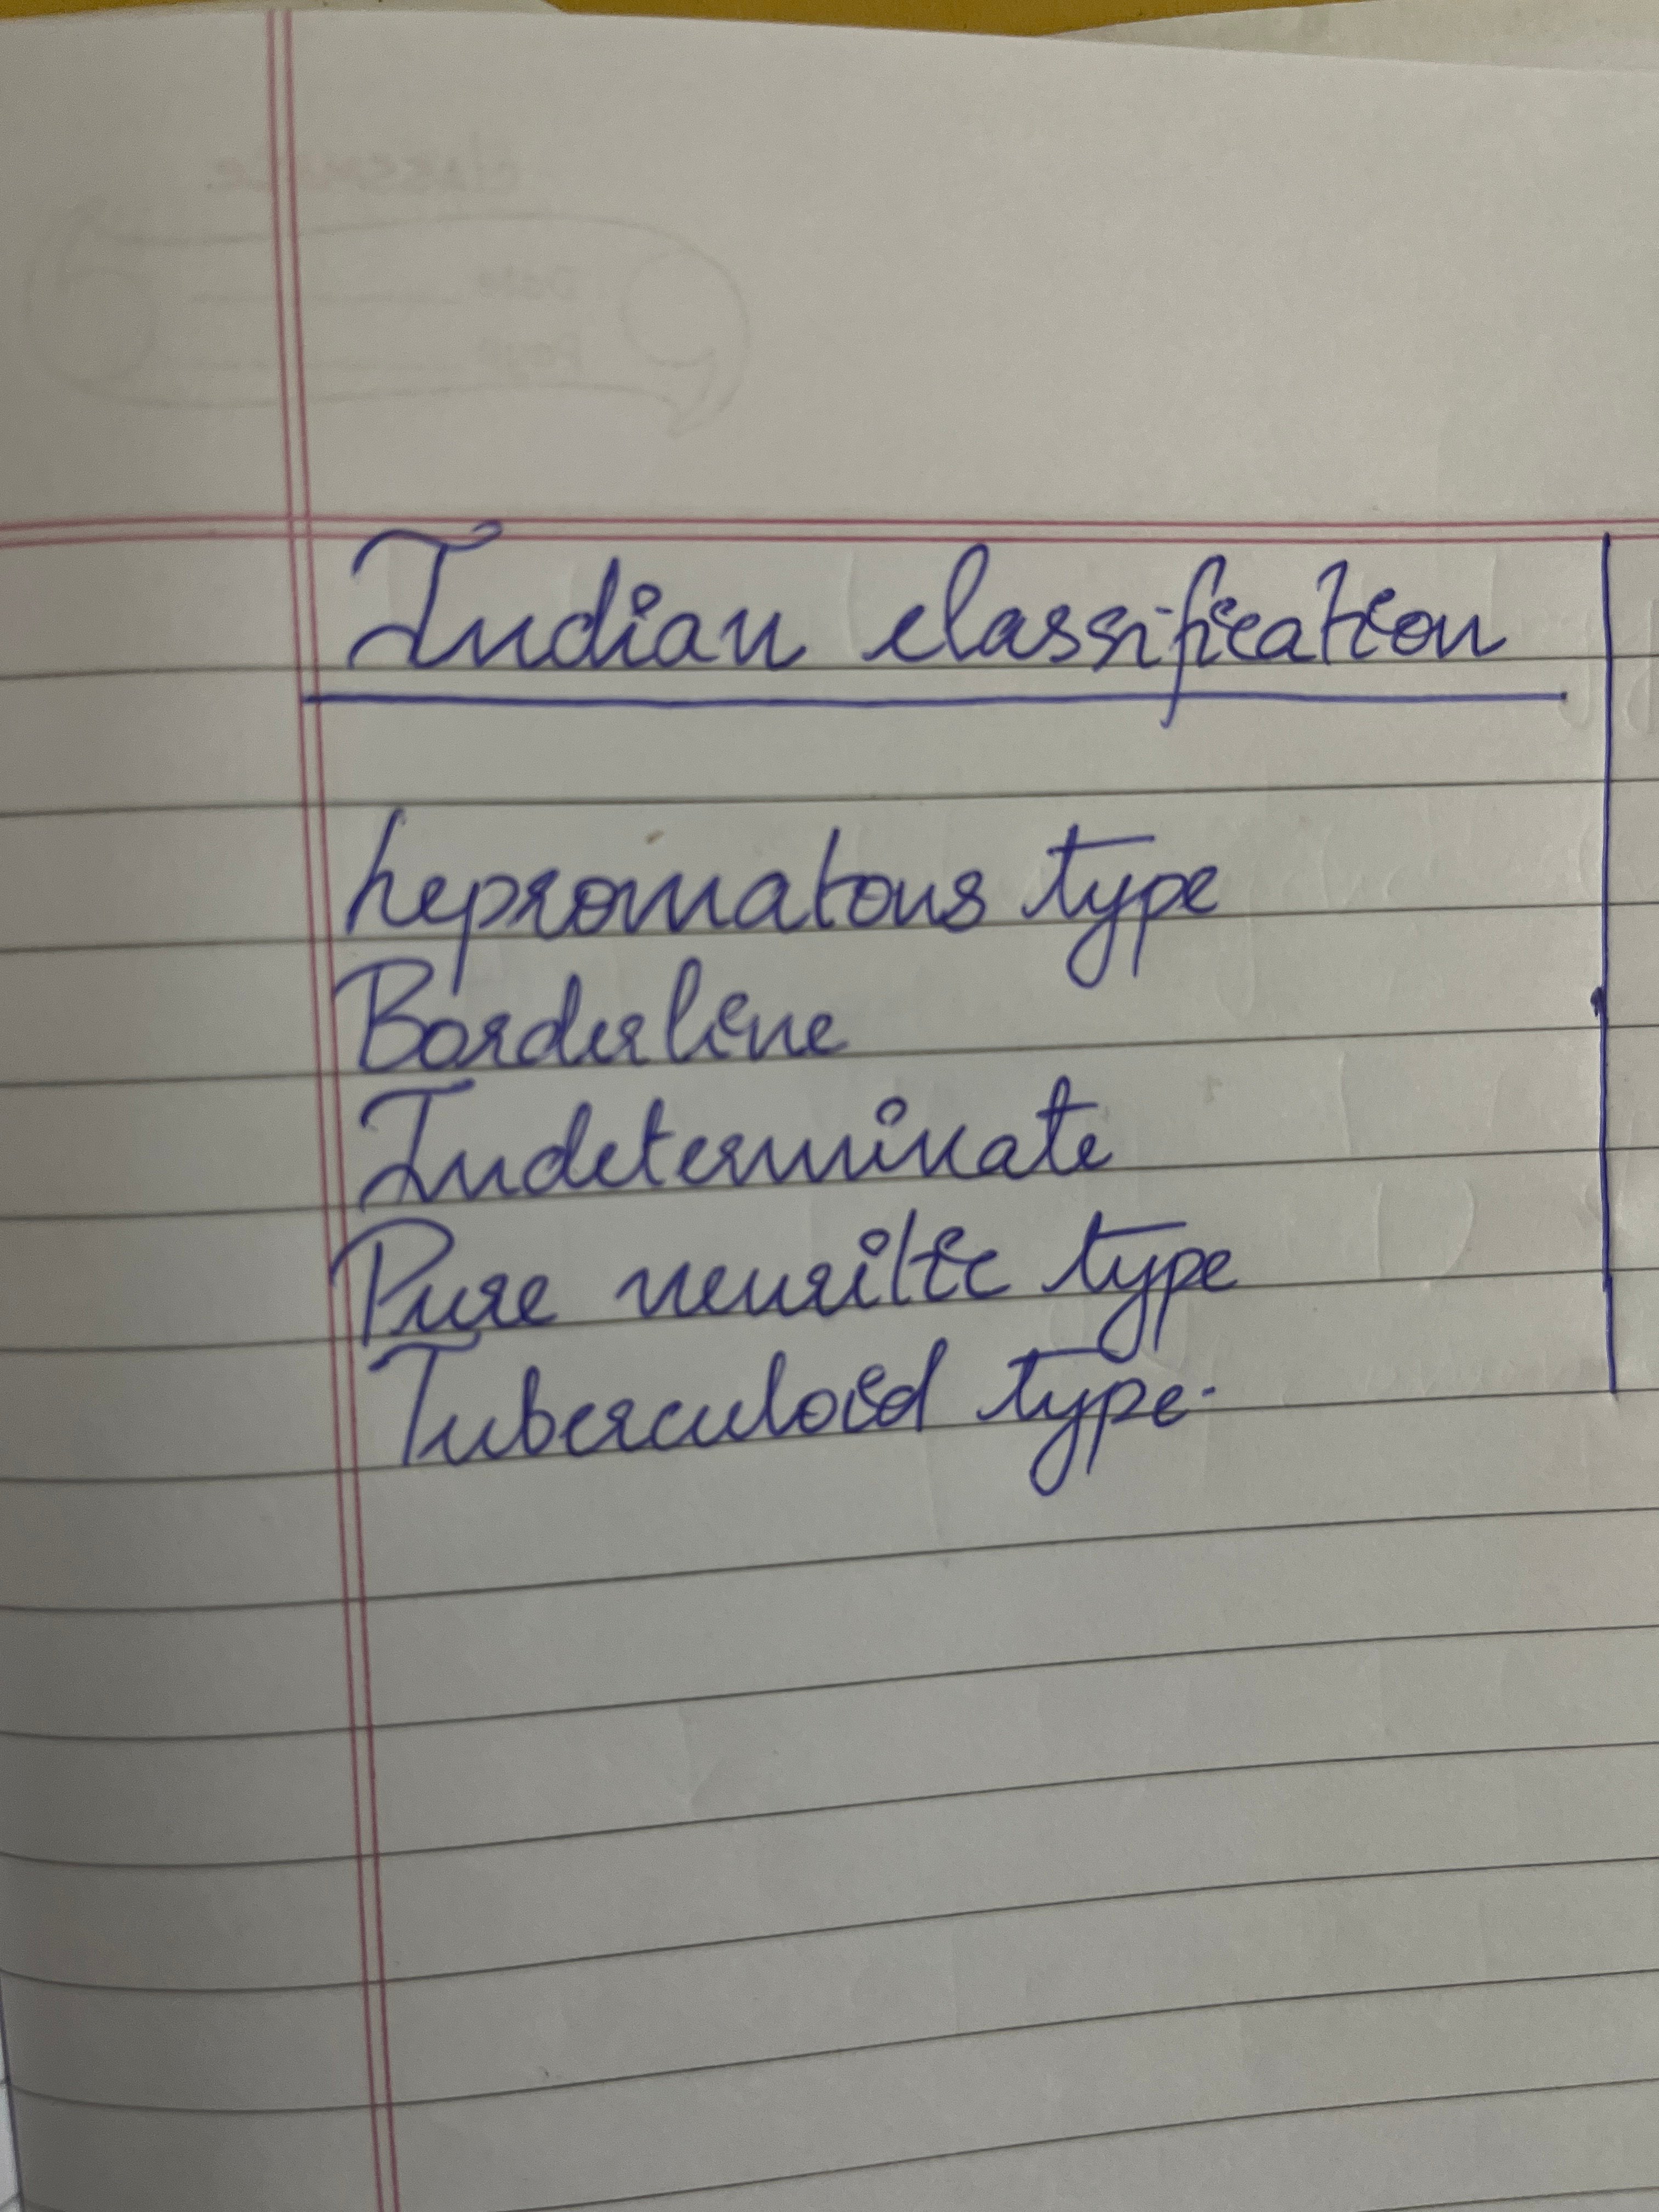 Indian classification
Lepromatous type
Borderline
Indeterminate
Pure neuritic type
Tuberculoid type.